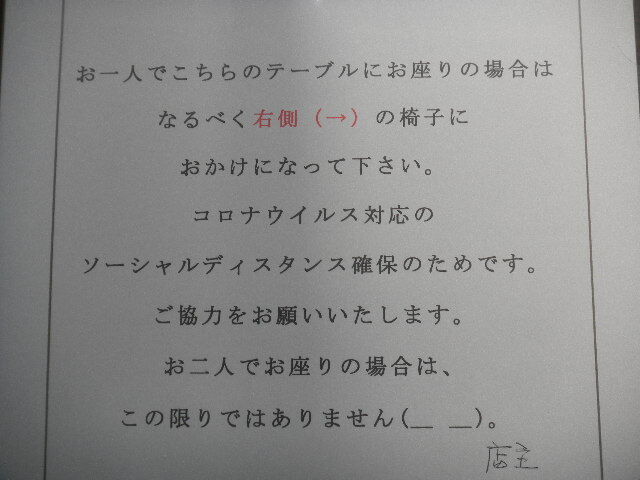 お一人でこちらのテーブルにお座りの場合は
なるべく右側（→）の椅子に
おかけになって下さい。
コロナウイルス対応の
ソーシャルディスタンス確保のためです。
ご協力をお願いいたします。
お二人でお座りの場合は、
この限りではありません(__ __)。
店主